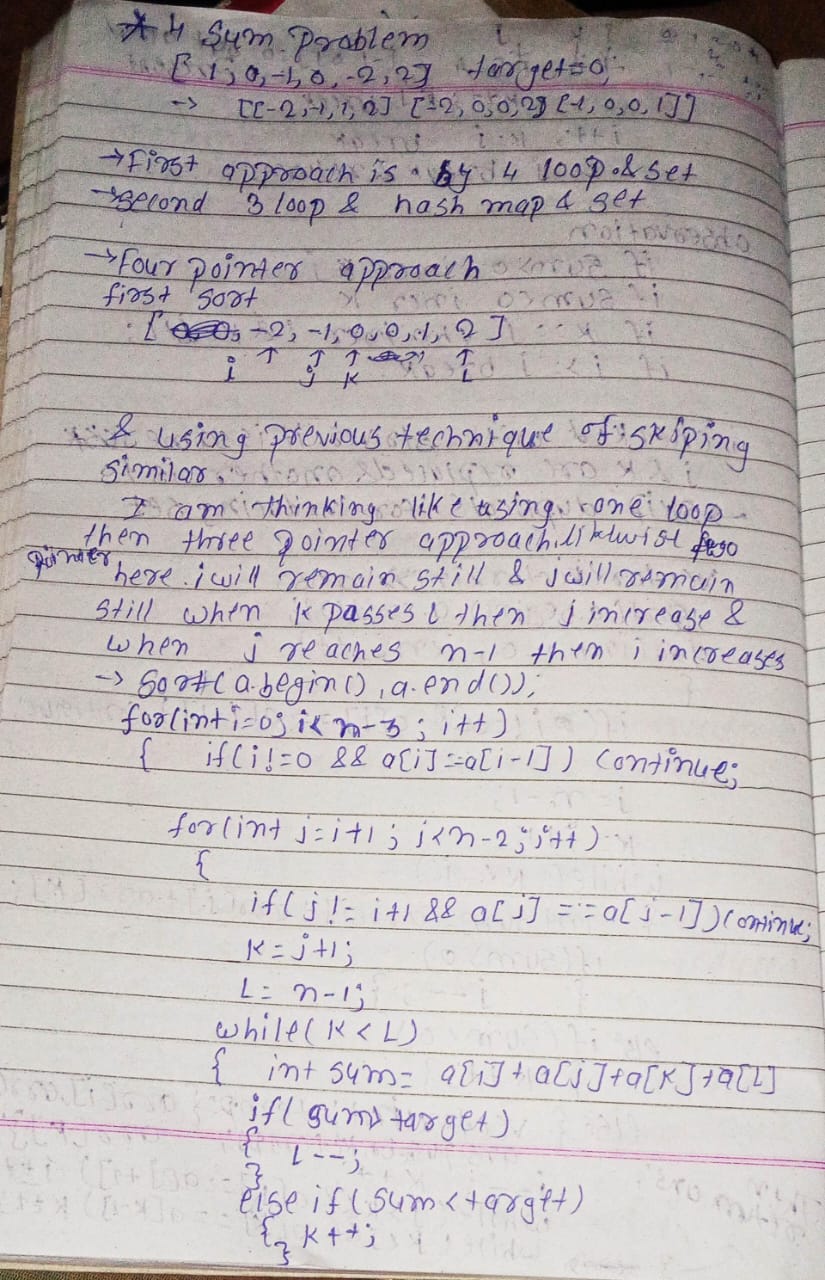 * 4 Sum Problem
[1, 0, -1, 0, -2, 2] target=0;
-> [[-2,-1,1,2] [-2,0,0,2] [-1,0,0,1]]
→First approach is by 4 loop & set
→second 3 loop & hash map & set
→Four pointer approach
first sort
[ -2, -1, 0, 0, 1, 2 ]
↑ ↑ ↑ ↑
i j K L
& using previous technique of skiping
similar.
I am thinking like using one loop
then three pointer approach. likwise
pointer
here i will remain still & j will remain
still when k passes L then j increase &
when j reaches n-1 then i increases
-> Sort(a.begin(), a.end());
for(int i=0; i< n-3; i++)
{ if(i!=0 && a[i]==a[i-1]) Continue;
for(int j=i+1; j<n-2; j++)
{
if(j!= i+1 && a[j] ==a[j-1]) Continue;
K=j+1;
L= n-1;
while(K<L)
{ int sum= a[i]+a[j]+a[K]+a[L]
if(sum> target)
{ L--;
}
else if(sum<target)
{ K++;
}